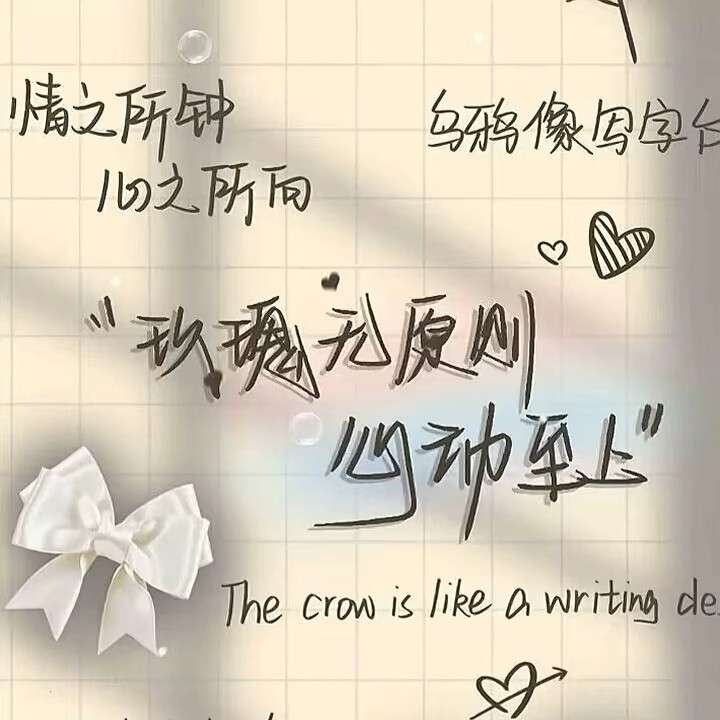 情之所钟
心之所向
乌鸦像写字台
"玫瑰无原则
心动至上"
The crow is like a writing de